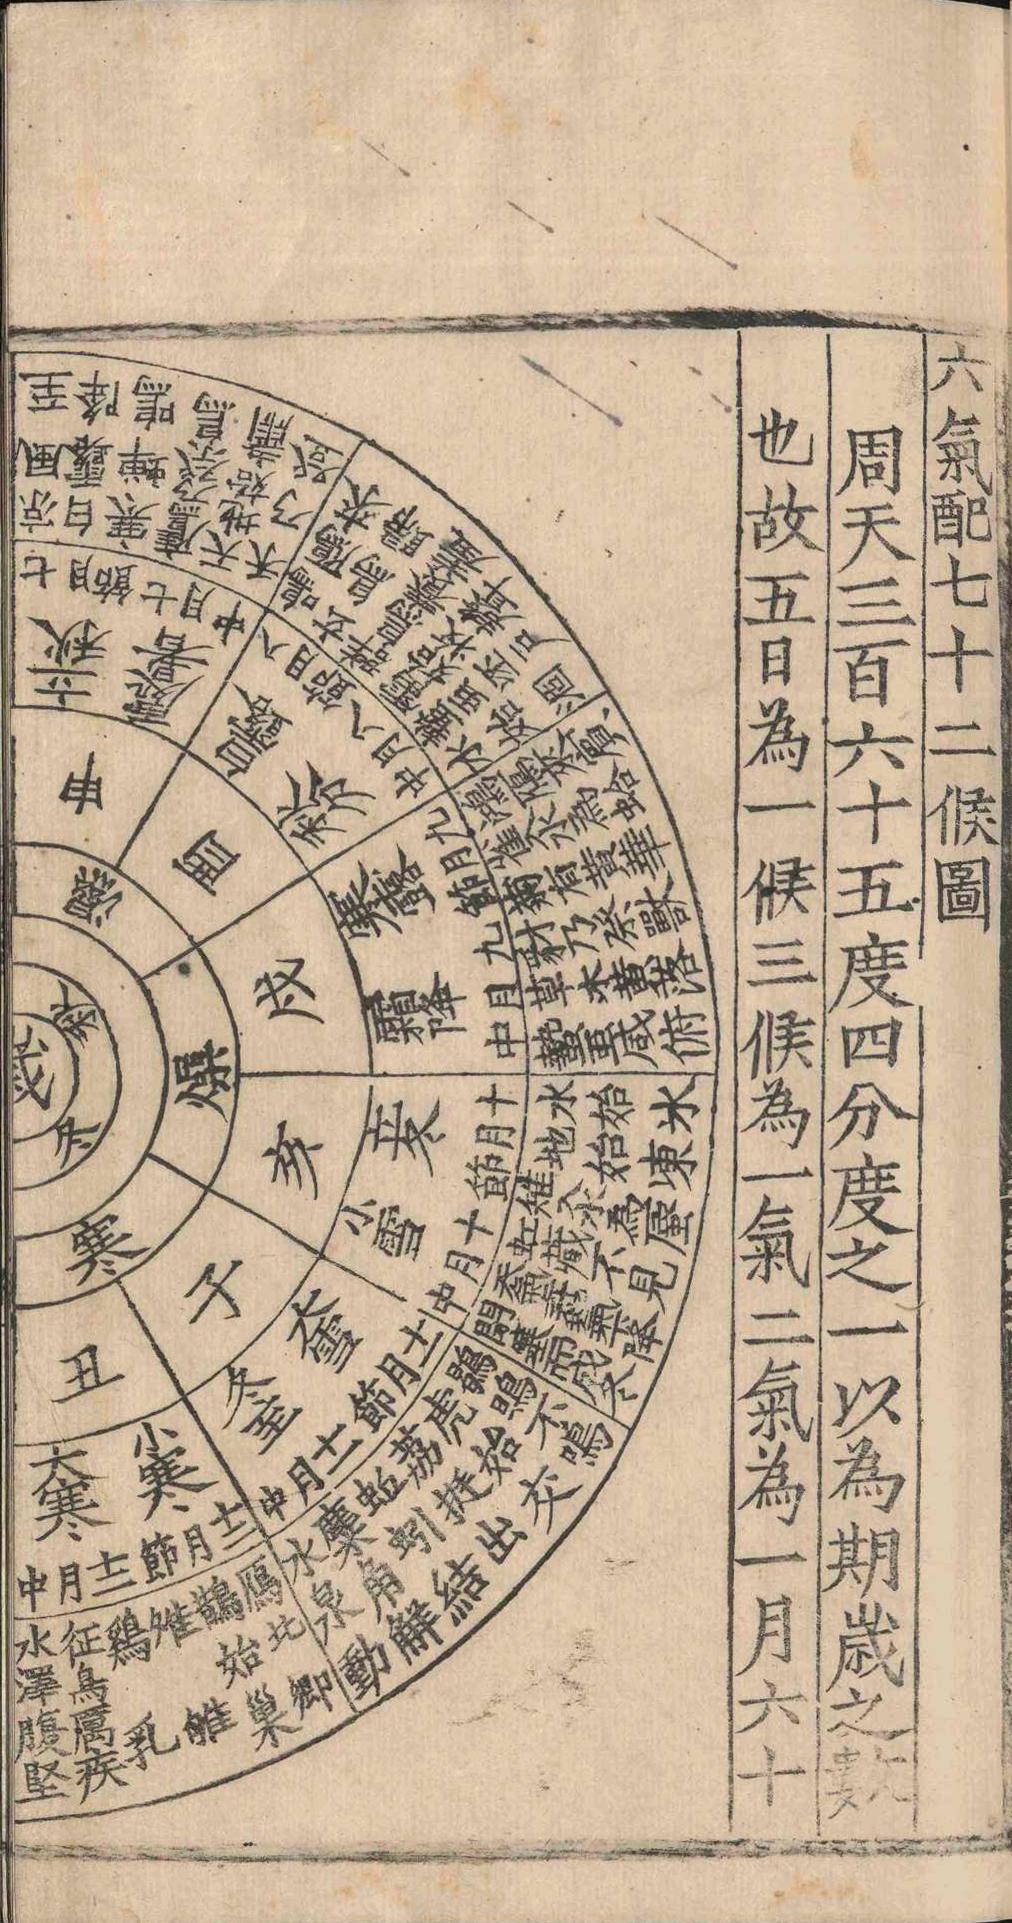 六氣配七十二候圖
周天三百六十五度四分度之一以為期歲之數
也故五日為一候三候為一氣二氣為一月六十
歲
秋
冬
濕
燥
寒
申
酉
戌
亥
子
丑
立秋
七月節
涼風至
白露降
寒蟬鳴
處暑
七月中
鷹乃祭鳥
天地始肅
禾乃
白露
八月節
鴻鴈來
玄鳥歸
秋分
八月中
水始涸
寒露
九月節
鴻鴈來賓
雀入水為蛤
菊有黃華
霜降
九月中
豺乃祭獸
草木黃落
蟄蟲咸俯
立冬
十月節
水始冰
地始凍
雉入水為蜃
小雪
十月中
虹藏不見
閉塞而成冬
大雪
十一月節
鶡鴠不鳴
虎始交
荔挺出
冬至
十一月中
蚯蚓結
麋角解
水泉動
小寒
十二月節
鴈北鄉
鵲始巢
雉雊
大寒
十二月中
鷄乳
征鳥厲疾
水澤腹堅